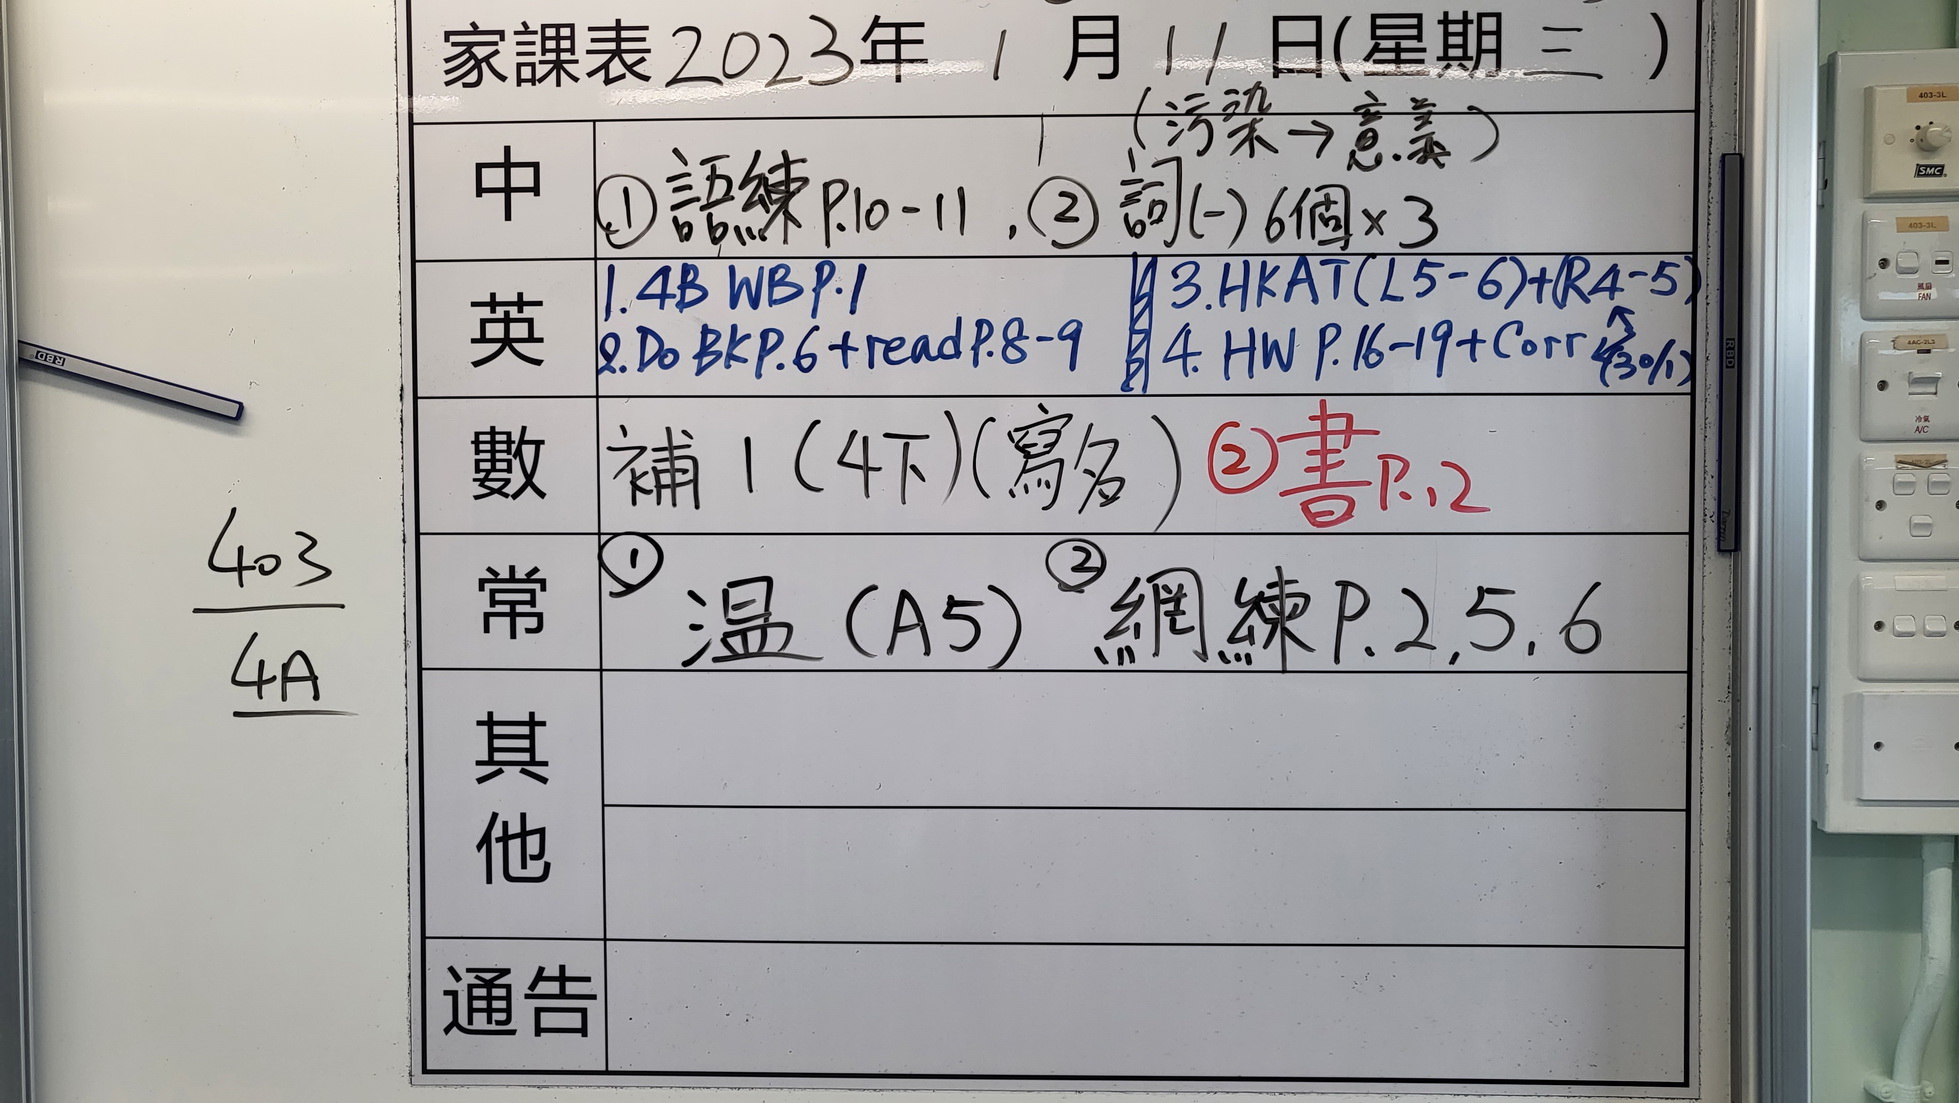 家課表2023年 1 月 11 日(星期 三 )
(污染→意義)
中 ①語練P.10-11 , ②詞(一)6個×3
英 1.4B WB P.1 3.HKAT(L5-6)+(R4-5)
2.Do BK P.6+read P.8-9 4. HW P.16-19+Corr (30/1)
數 補1(4下)(寫名) ②書P.12
常 ①溫(A5) ②網練P.2,5,6
其他
通告
403
4A
RBD
RBD
403-3L
SMC
403-3L
風扇
FAN
4AC-2L3
冷氣
A/C